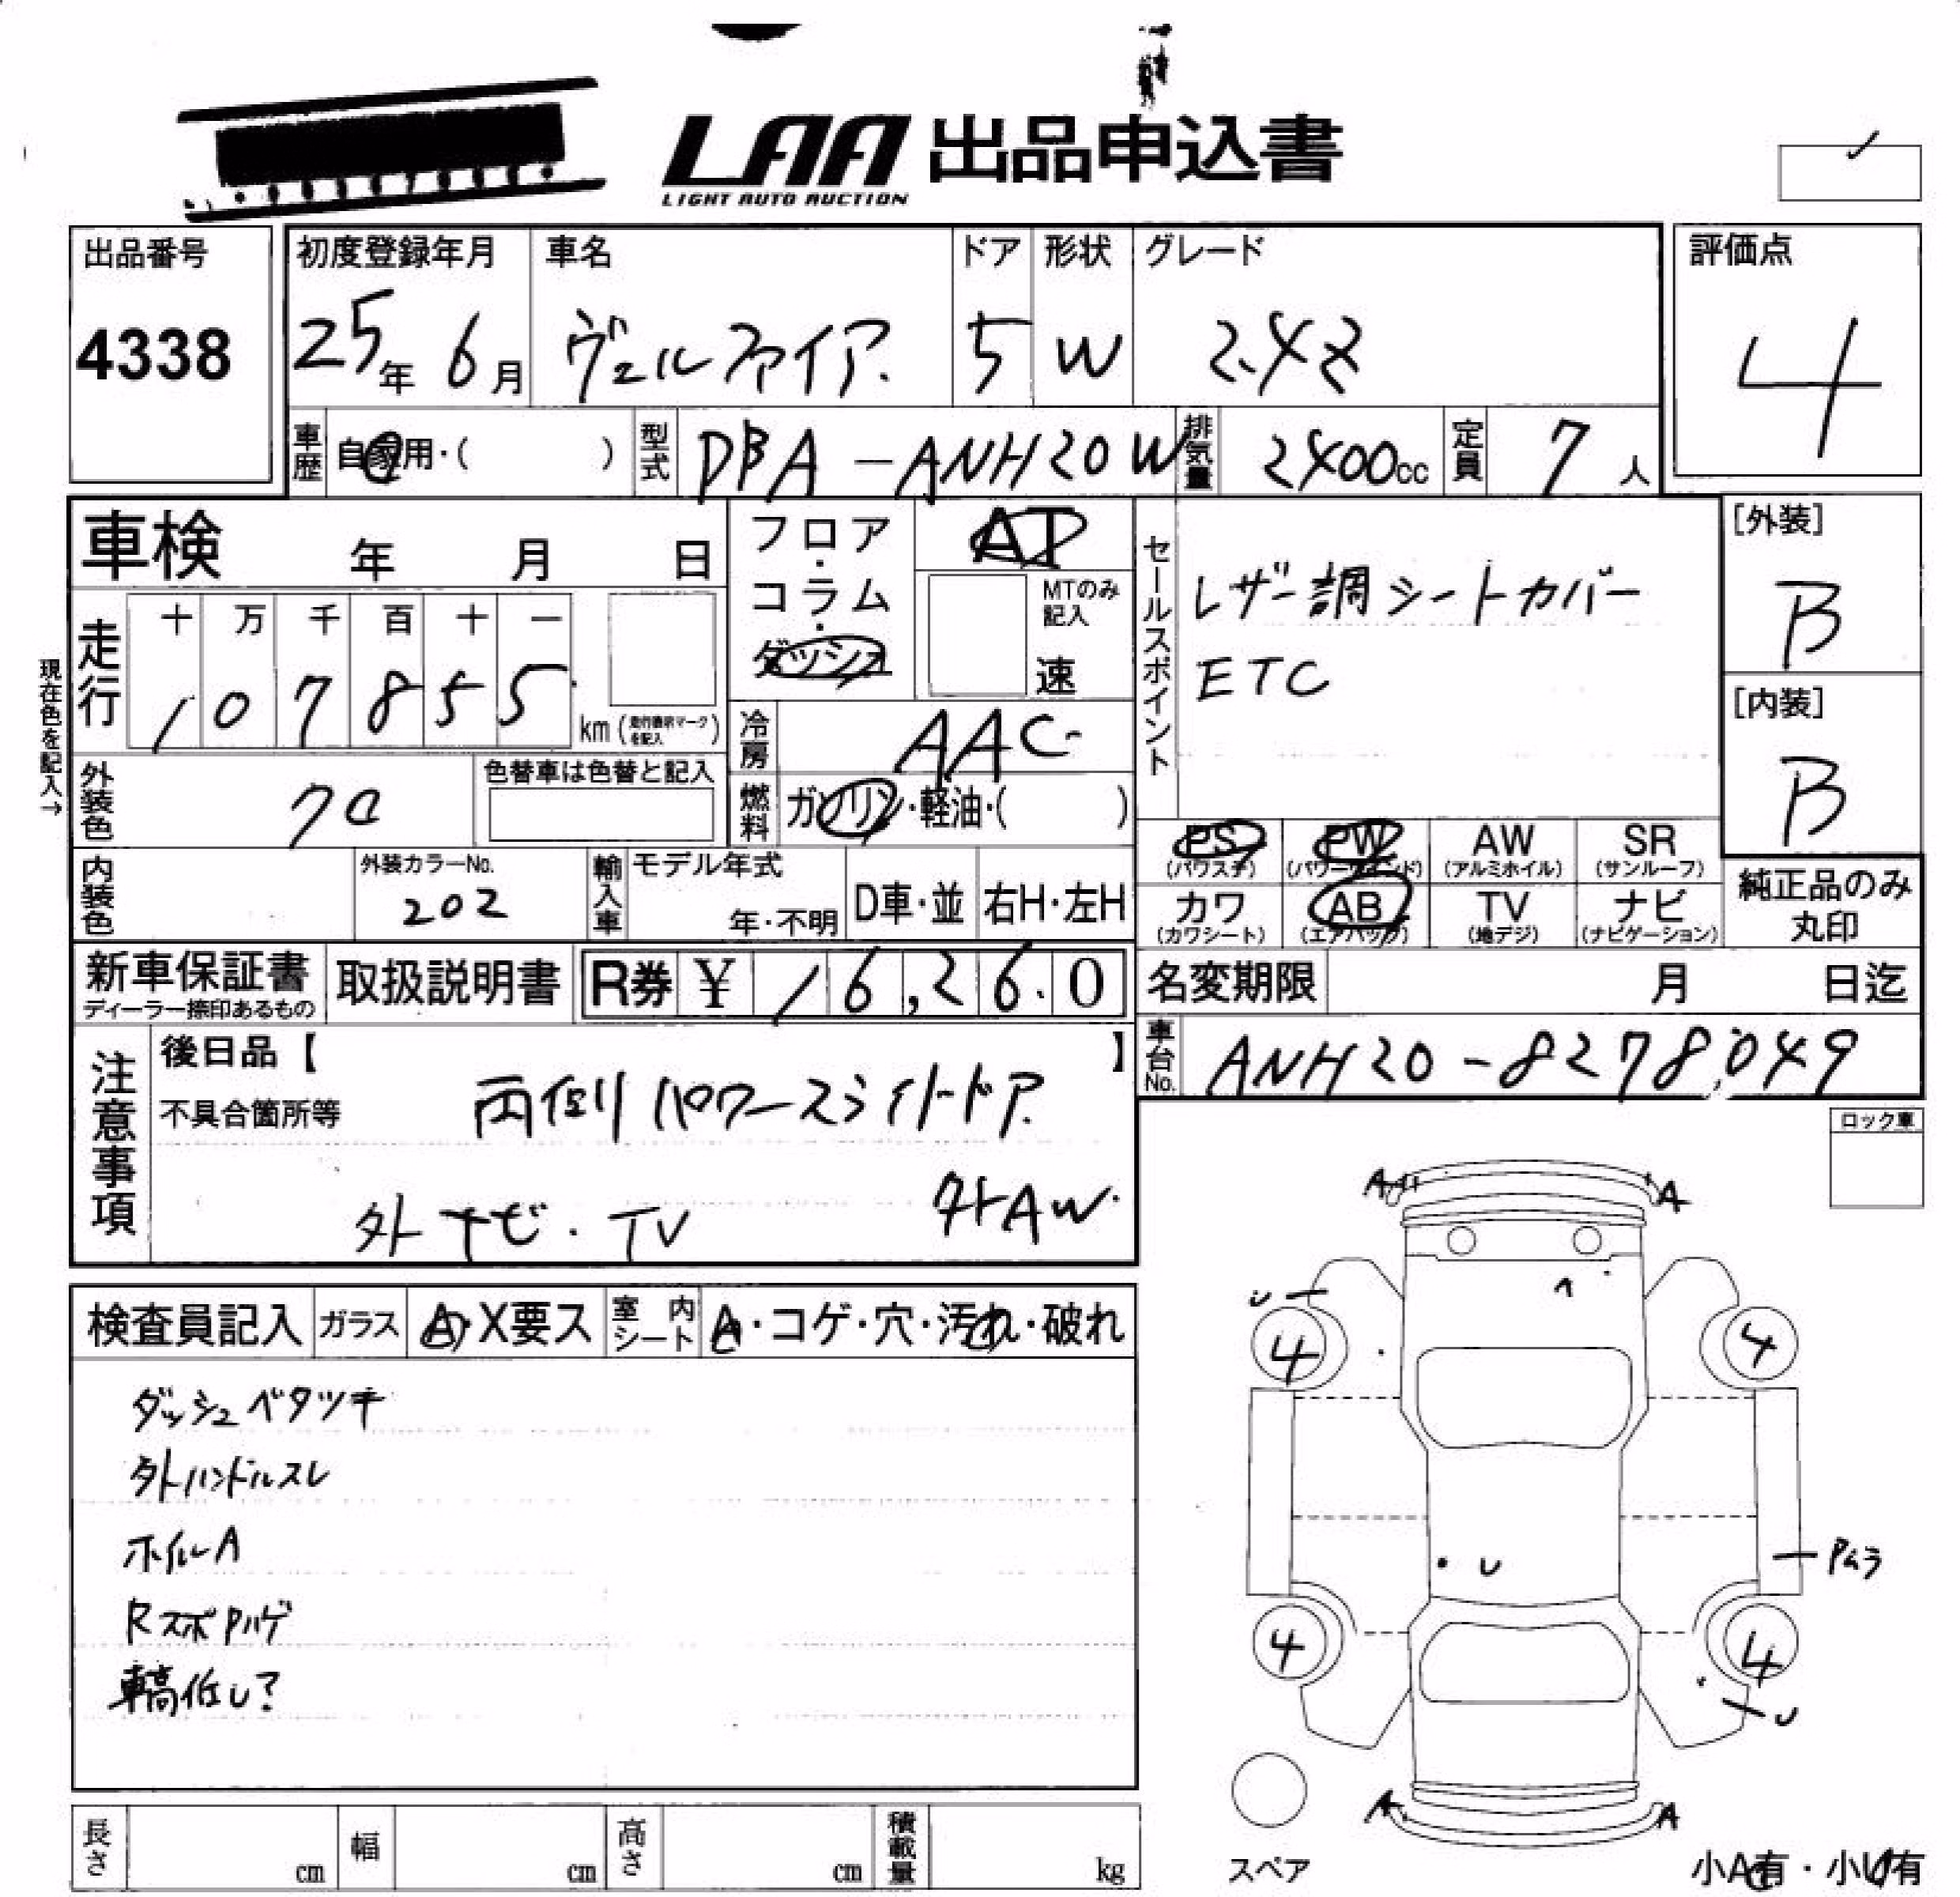 LAA 出品申込書
LIGHT AUTO AUCTION
出品番号
4338
初度登録年月
25年 6月
車名
ヴェルファイア.
ドア
5
形状
W
グレード
2.4Z
評価点
4
車歴 自家用・( )
型式 DBA-ANH20W
排気量 2400cc
定員 7人
車検 年 月 日
走行
十 万 千 百 十 一
1 0 7 8 5 5
km (走行距離マークを記入)
現在色を記入→
フロア・コラム・ダッシュ
AT
MTのみ記入
速
冷房 AAC
燃料 ガソリン・軽油・( )
セールスポイント
レザー調シートカバー
ETC
[外装]
B
[内装]
B
外装色 クロ
色替車は色替と記入
内装色
外装カラーNo.
202
輸入車 モデル年式
年・不明
D車・並 右H・左H
PS (パワステ) PW (パワーウインド) AW (アルミホイル) SR (サンルーフ)
カワ (カワシート) AB (エアバッグ) TV (地デジ) ナビ (ナビゲーション)
純正品のみ丸印
新車保証書
ディーラー捺印あるもの
取扱説明書
R券 ¥ 16,260
名変期限 月 日迄
車台No. ANH20-8278049
注意事項
後日品【 】
不具合箇所等
両側パワースライドドア.
外ナビ・TV 外AW.
ロック車
検査員記入 ガラス A・X要ス 室内シート A・コゲ・穴・汚れ・破れ
ダッシュベタツキ
外ハンドルスレ
ホイルA
RスポPハゲ
車高低し?
A A
U
4 4
U
Pムラ
4 4
U
A A
スペア
小A有・小U有
長さ cm 幅 cm 高さ cm 積載量 kg